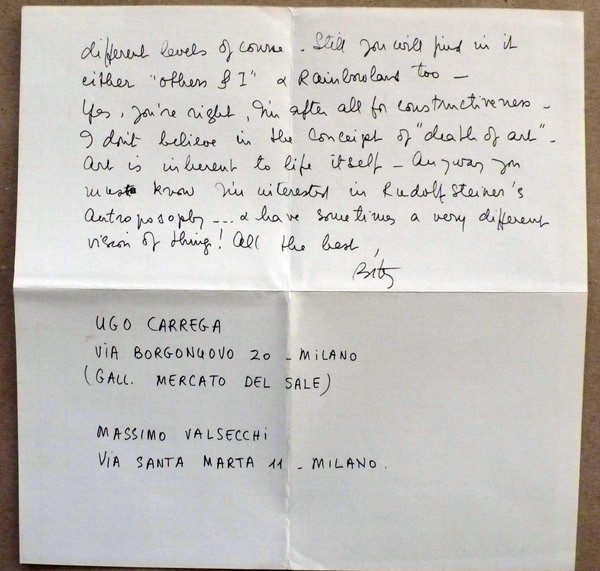 different levels of course. Still you will find in it
either "others & I" & Rainbowland too —
Yes, you're right, I'm after all for constructiveness -
I don't believe in the concept of "death of art".
Art is inherent to life itself - Anyway you
must know I'm interested in Rudolf Steiner's
Antroposophy ... & have sometimes a very different
vision of things! All the best,
UGO CARREGA
VIA BORGONUOVO 20 - MILANO
(GALL. MERCATO DEL SALE)
MASSIMO VALSECCHI
VIA SANTA MARTA 11 - MILANO.